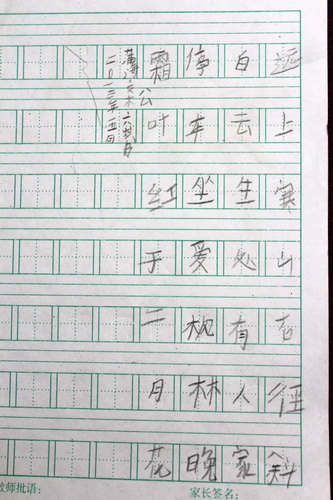 远上寒山石径斜
白去生处有人家
停车坐爱枫林晚
霜叶红于二月花
公
六岁半
二〇一三年
师批语：
家长签名：